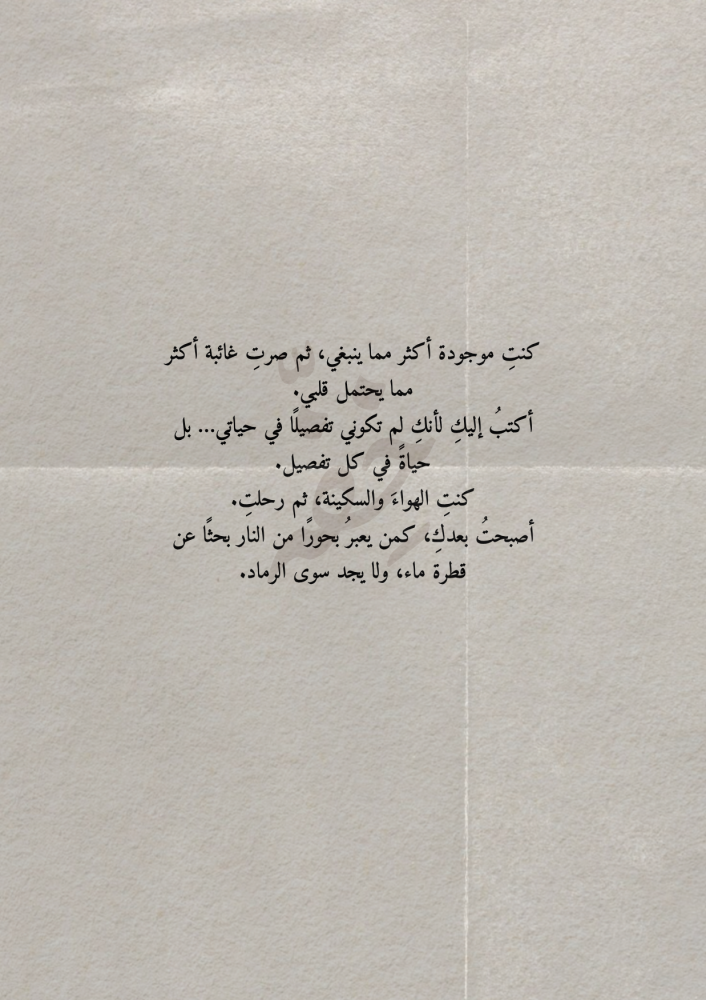 كنتِ موجودة أكثر مما ينبغي، ثم صرتِ غائبة أكثر
مما يحتمل قلبي.
أكتبُ إليكِ لأنكِ لم تكوني تفصيلًا في حياتي... بل
حياةً في كل تفصيل.
كنتِ الهواءَ والسكينة، ثم رحلتِ.
أصبحتُ بعدكِ، كمن يعبرُ بحورًا من النار بحثًا عن
قطرة ماء، ولا يجد سوى الرماد.